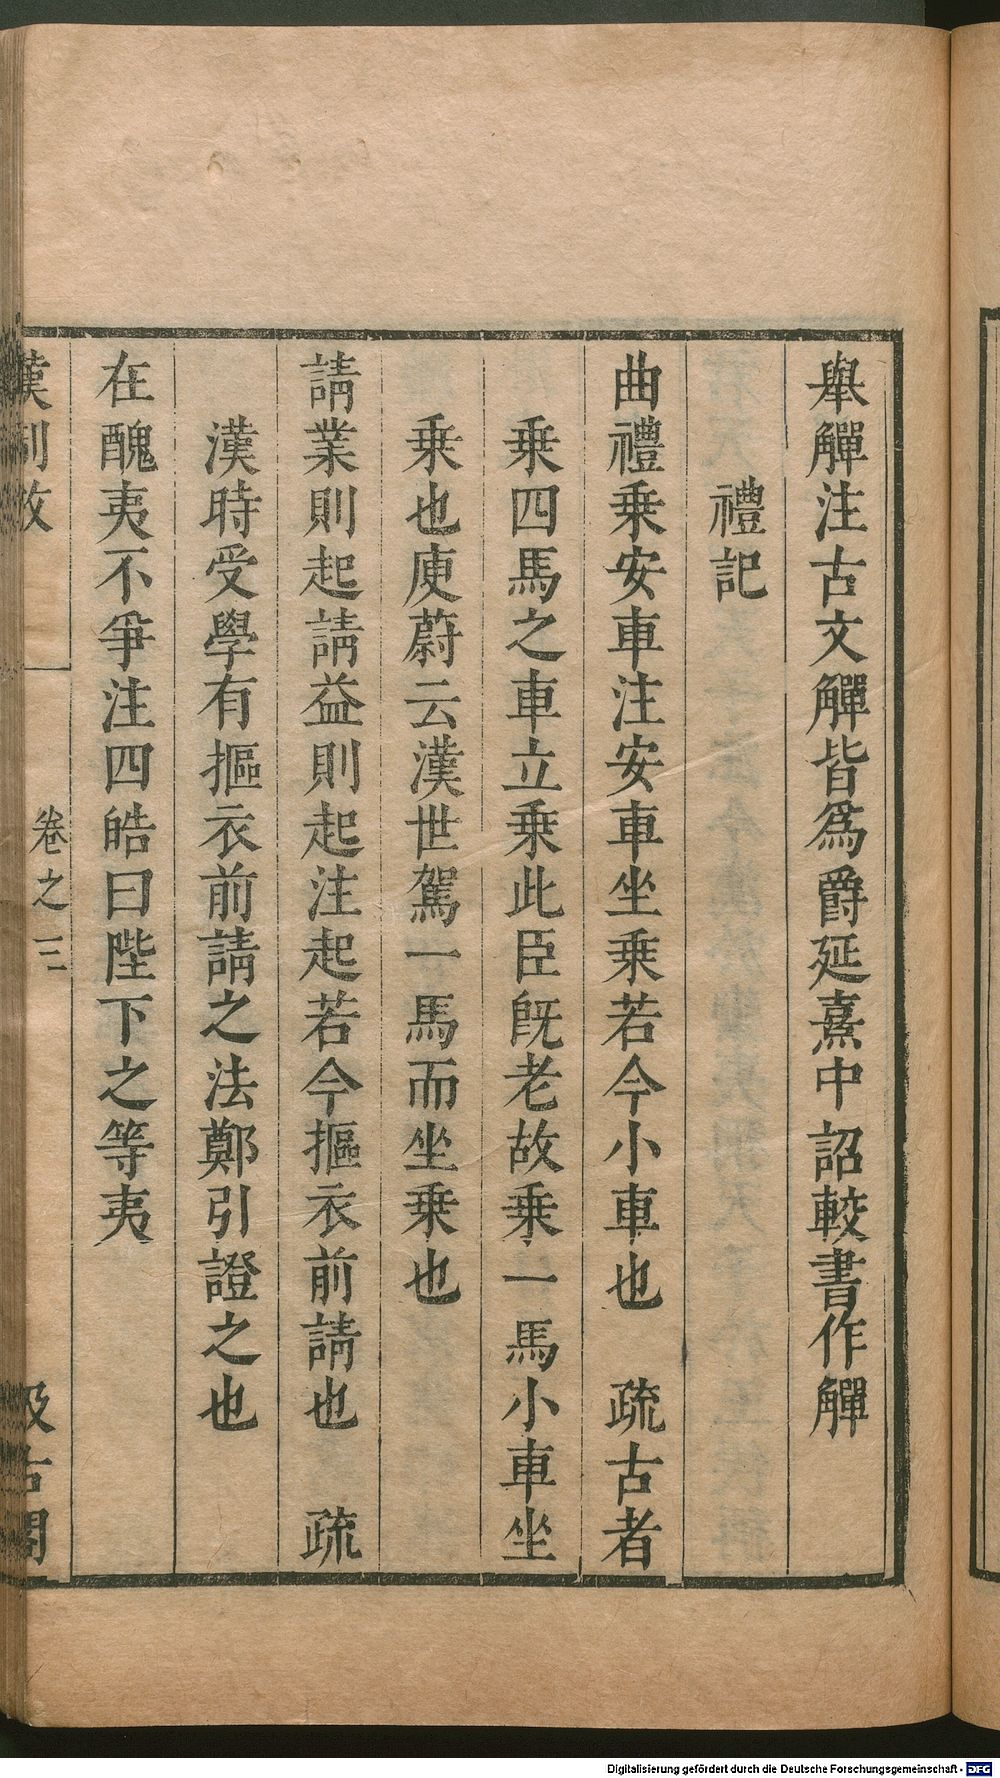 舉觶注古文觶皆爲爵延熹中詔較書作觶
禮記
曲禮乗安車注安車坐乗若今小車也　疏古者
乗四馬之車立乗此臣旣老故乗一馬小車坐
乗也庾蔚云漢世駕一馬而坐乗也
請業則起請益則起注起若今摳衣前請也　疏
漢時受學有摳衣前請之法鄭引證之也
在醜夷不爭注四皓曰陛下之等夷
漢制攷　卷之三　汲古閣
Digitalisierung gefördert durch die Deutsche Forschungsgemeinschaft - DFG